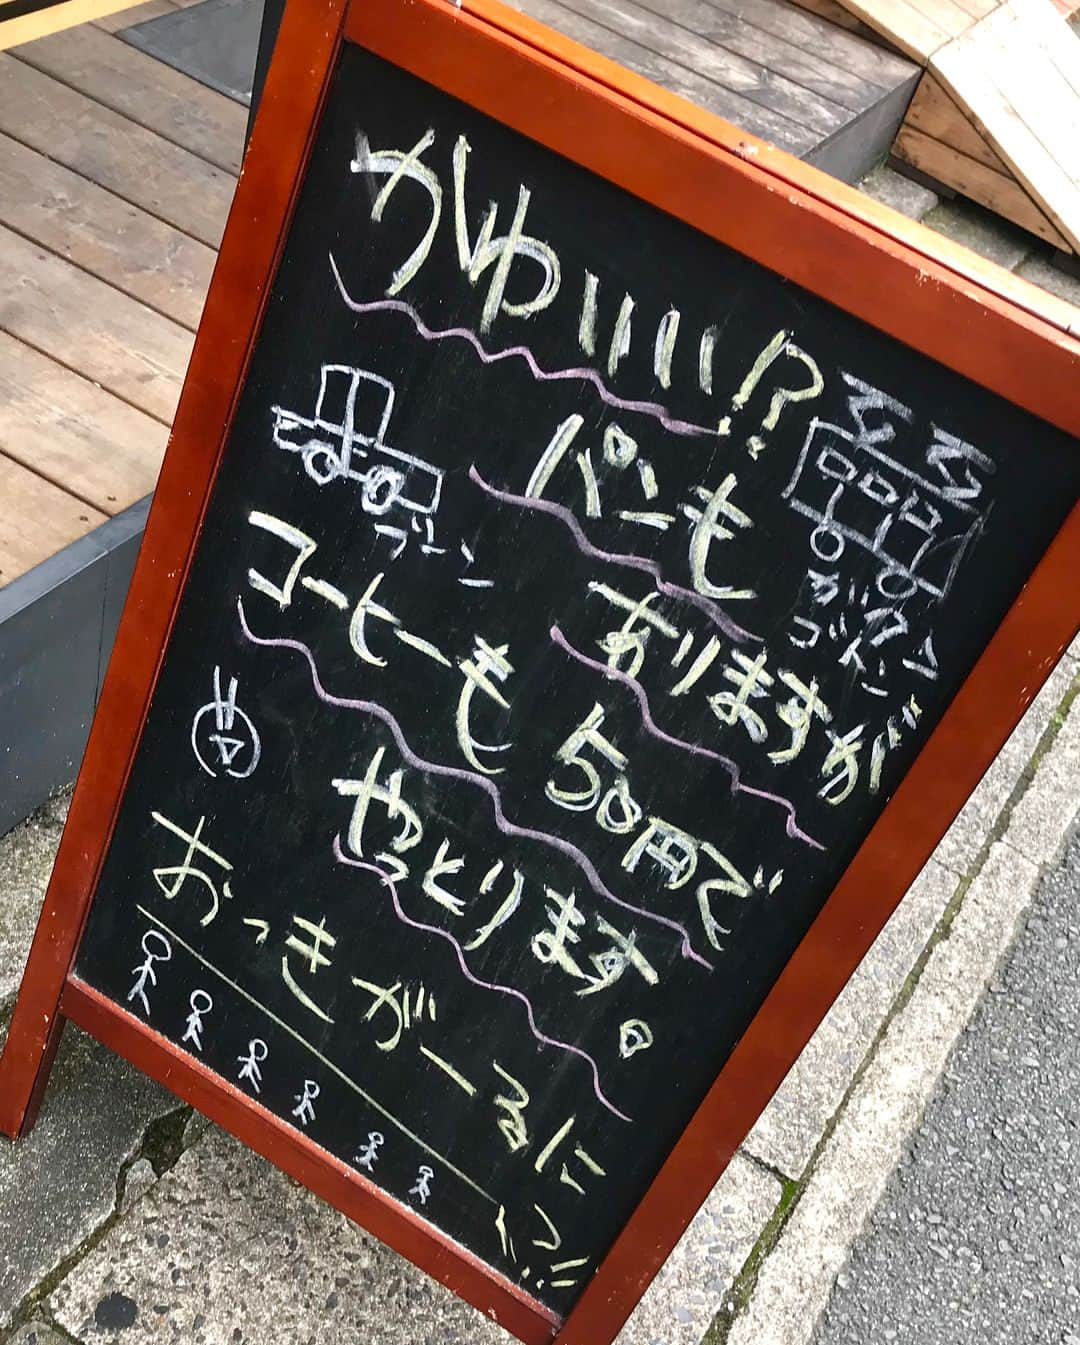 かゆいい!?
パンも
ありますが
ブーン
コーヒーも50円で
やっとります。
おっきがーるに